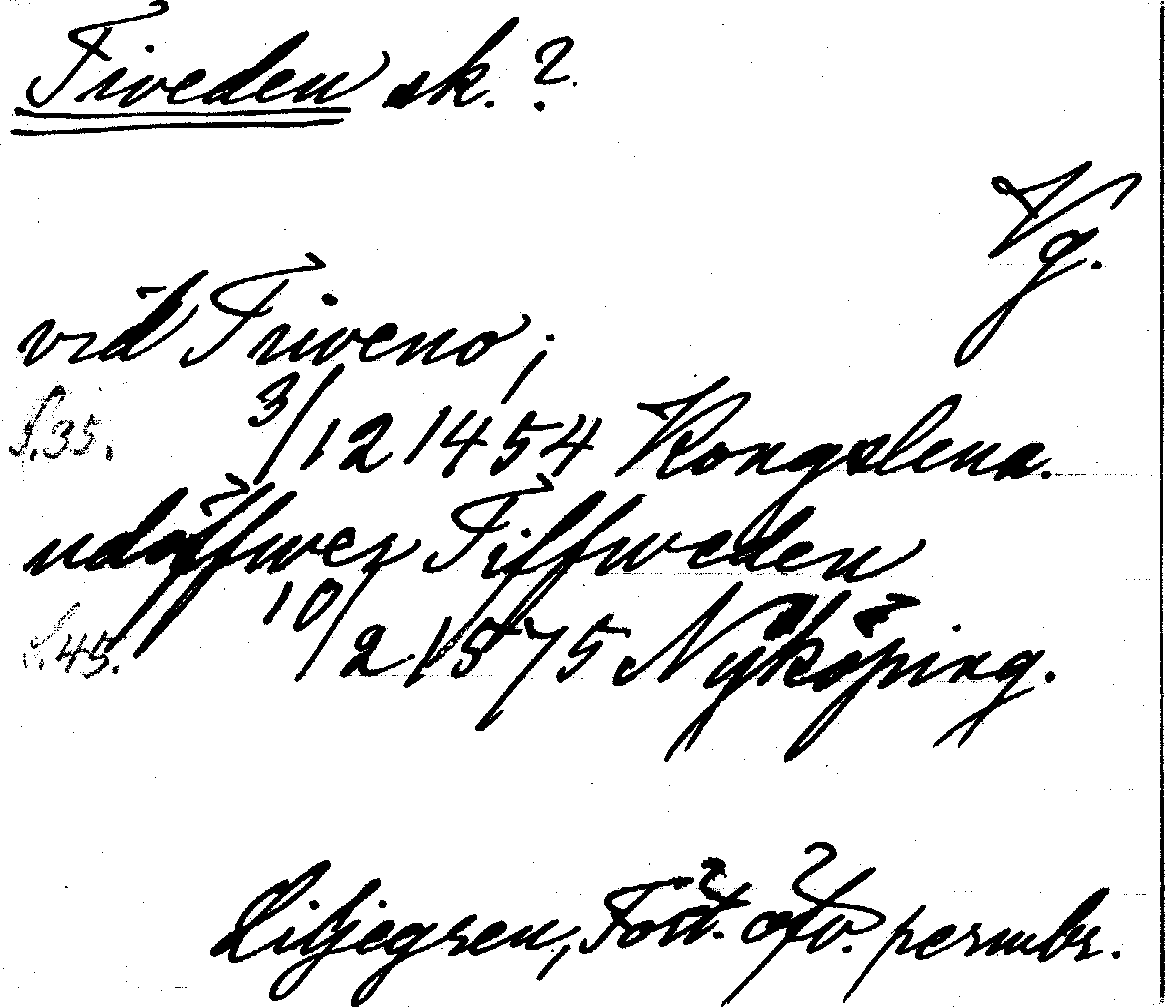 Tiveden sk.?
Vg.
vid Tiweno;
S. 35. 3/12 1454 Kongslena.
udöffwer Tiffweden
S. 45. 10/2 1575 Nyköping.
Liljegren, Fört. öfv. permbr.